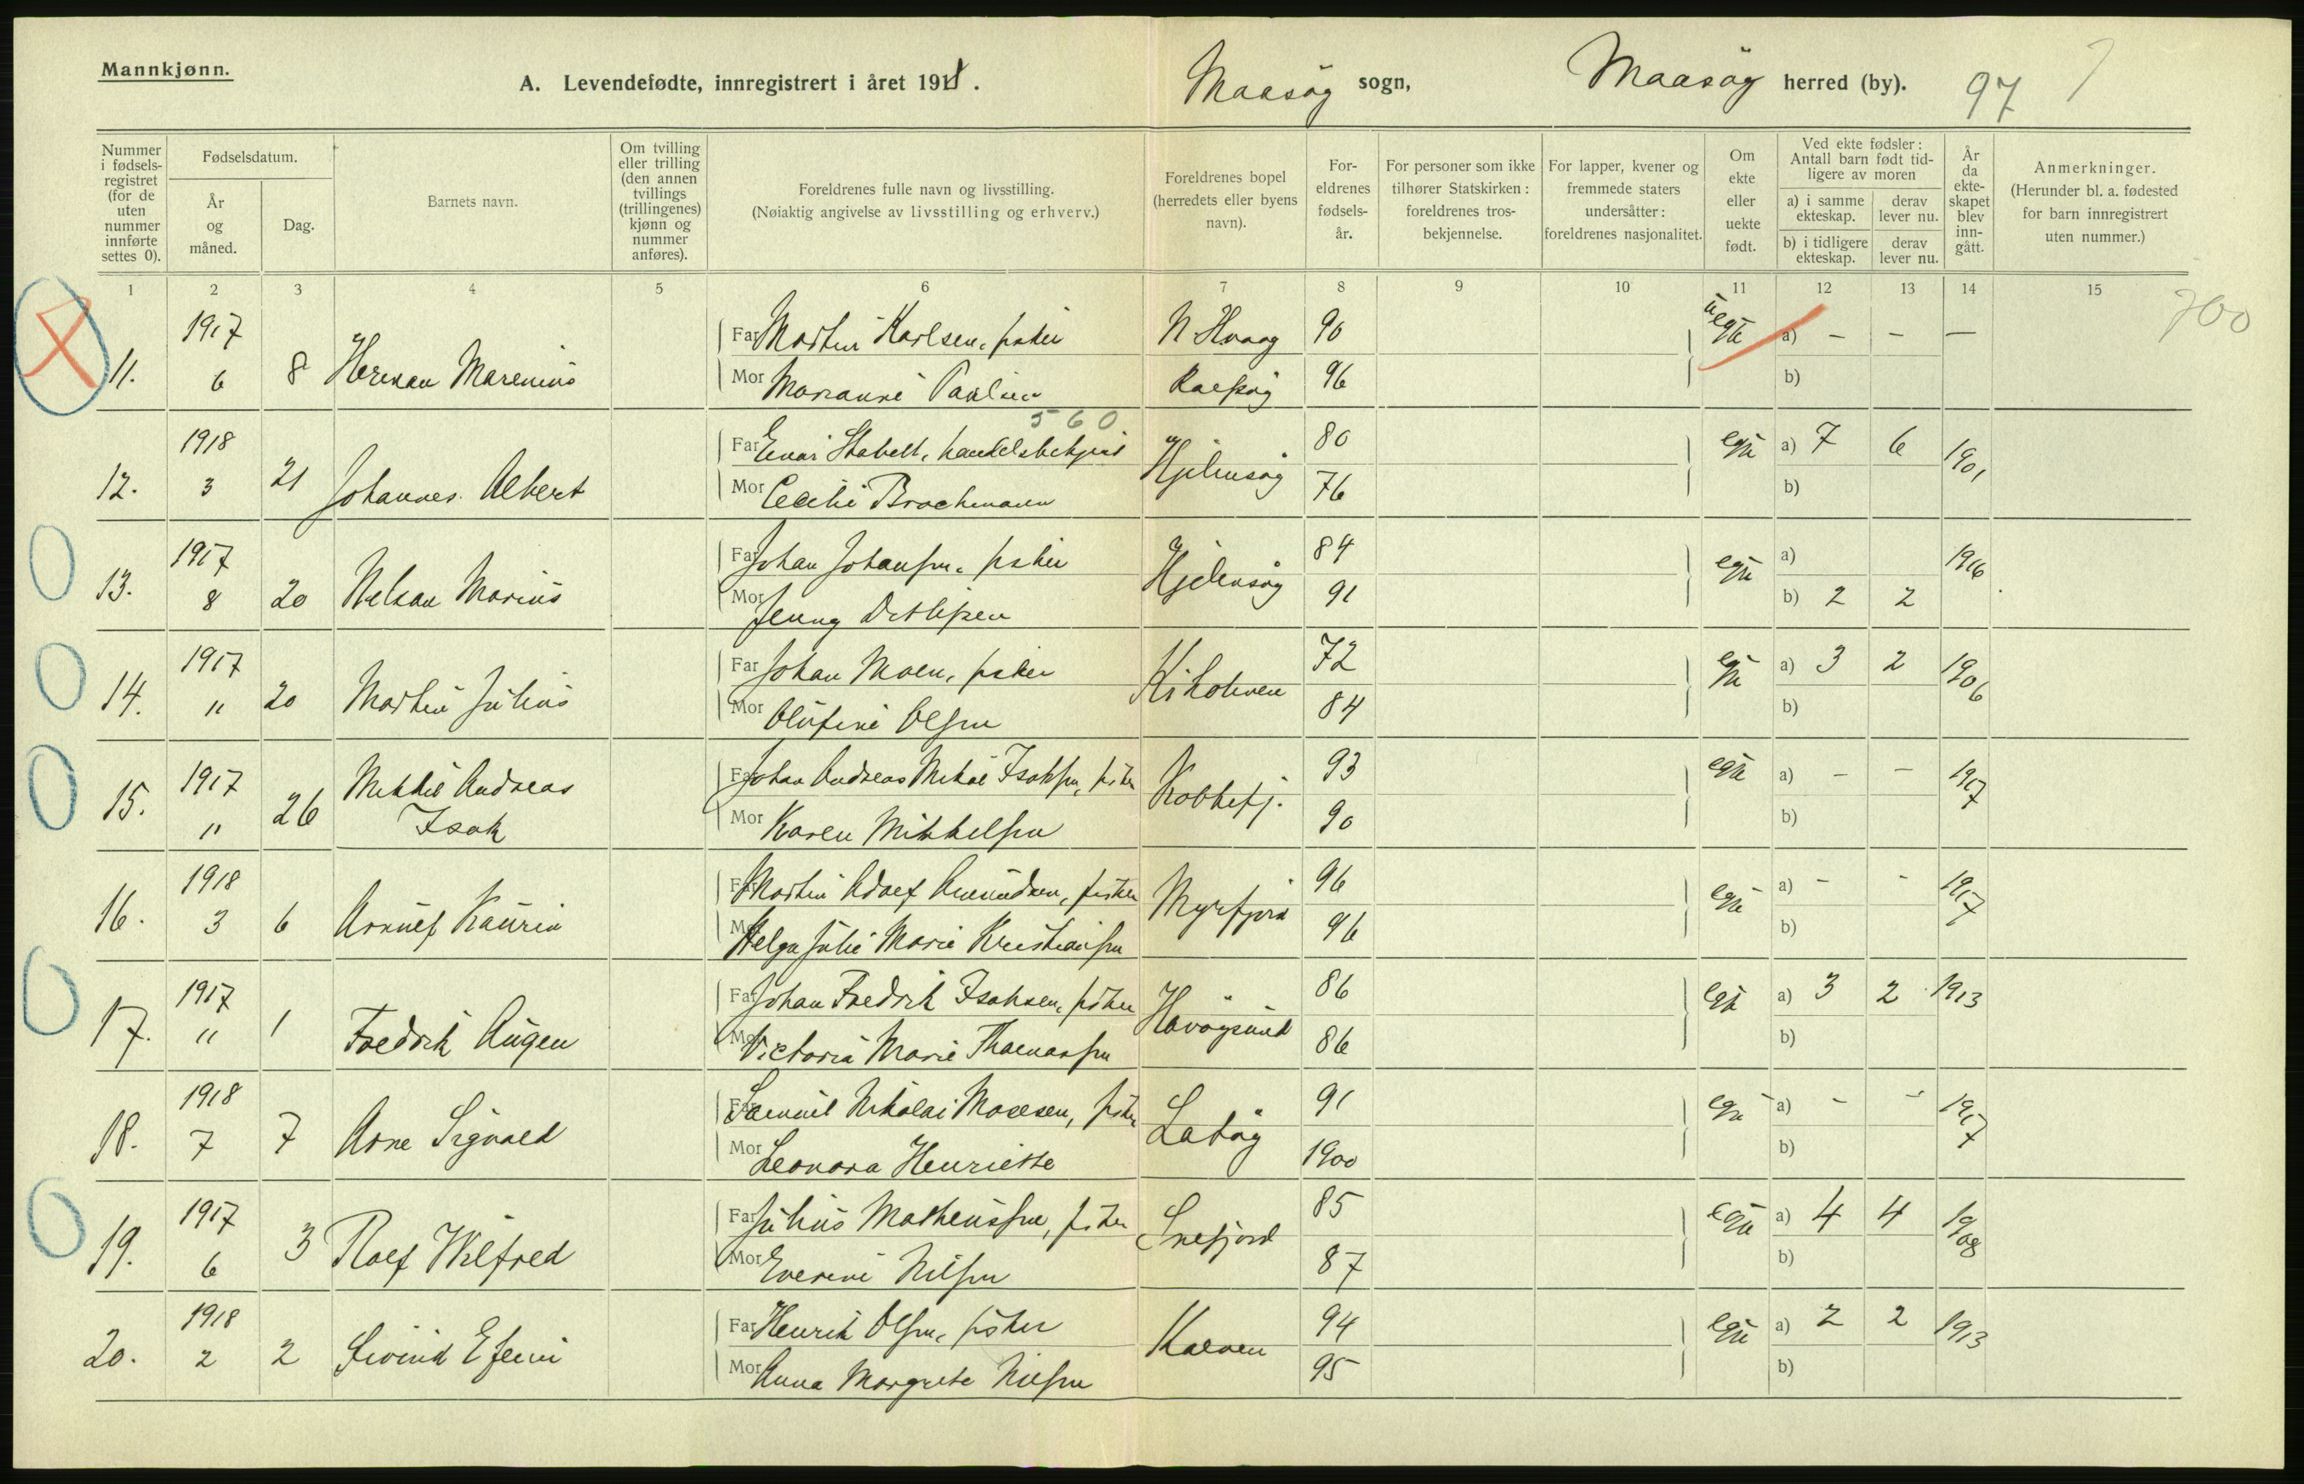 Mannkjønn.
A. Levendefødte, innregistrert i året 1918.
Maasøy sogn, Maasøy herred (by). 97
Nummer i fødsels-registret (for de uten nummer innførte settes 0).
Fødselsdatum.
År og måned.
Dag.
Barnets navn.
Om tvilling eller trilling (den annen tvillings (trillingenes) kjønn og nummer anføres).
Foreldrenes fulle navn og livsstilling.
(Nøiaktig angivelse av livsstilling og erhverv.)
Foreldrenes bopel (herredets eller byens navn).
For-eldrenes fødsels-år.
For personer som ikke tilhører Statskirken: foreldrenes tros-bekjennelse.
For lapper, kvener og fremmede staters undersåtter: foreldrenes nasjonalitet.
Om ekte eller uekte født.
Ved ekte fødsler: Antall barn født tid-ligere av moren
a) i samme ekteskap.
derav lever nu.
b) i tidligere ekteskap.
derav lever nu.
År da ekte-skapet blev inn-gått.
Anmerkninger.
(Herunder bl. a. fødested for barn innregistrert uten nummer.)
1 2 3 4 5 6 7 8 9 10 11 12 13 14 15
700
1917 Far Martin Karlsen, fisker 90 uegte a) — — —
11. 6 8 Herman Marenius Mor Marianne Paulsen 96 b)
560
1918 Far Einar Stabell, handelsbetjent Hjelmsøy 80 egte a) 7 6 1901
12. 3 21 Johannes Albert Mor Cecilie Brochmann 76 b)
1917 Far Johan Johansen, fisker Hjelmsøy 84 egte a) 1916
13. 8 20 Nelson Marius Mor Jenny Detlefsen 91 b) 2 2
1917 Far Johan Moen, fisker 72 egte a) 3 2 1906
14. " 20 Martin Julius Mor Olufine Olsen 84 b)
1917 Far Johan Andreas Mikal Isaksen, fisker Kobbefj. 93 egte a) — — 1917
15. " 26 Mikkel Andreas Isak Mor Karen Mikkelsen 90 b)
1918 Far Martin Adolf Amundsen, fisker Myrfjord 96 egte a) - - 1917
16. 3 6 Arnulf Kaurin Mor Helga Julie Marie Kristiansen 96 b)
1917 Far Johan Fredrik Isaksen, fisker Havøysund 86 egte a) 3 2 1913
17. " 1 Fredrik Augen Mor Victoria Marie Thomassen 86 b)
1918 Far Samuel Nikolai Mosesen, fisker Latøy 91 egte a) - - 1917
18. 7 7 Arne Sigvald Mor Leonora Henriette 1900 b)
1917 Far Julius Matheussen, fisker Snefjord 85 egte a) 4 4 1908
19. 6 3 Rolf Wilfred Mor Everine Nilsen 87 b)
1918 Far Henrik Olsen, fisker Kalven 94 egte a) 2 2 1913
20. 2 2 Eivind Mor Anna Margrete Nilsen 95 b)